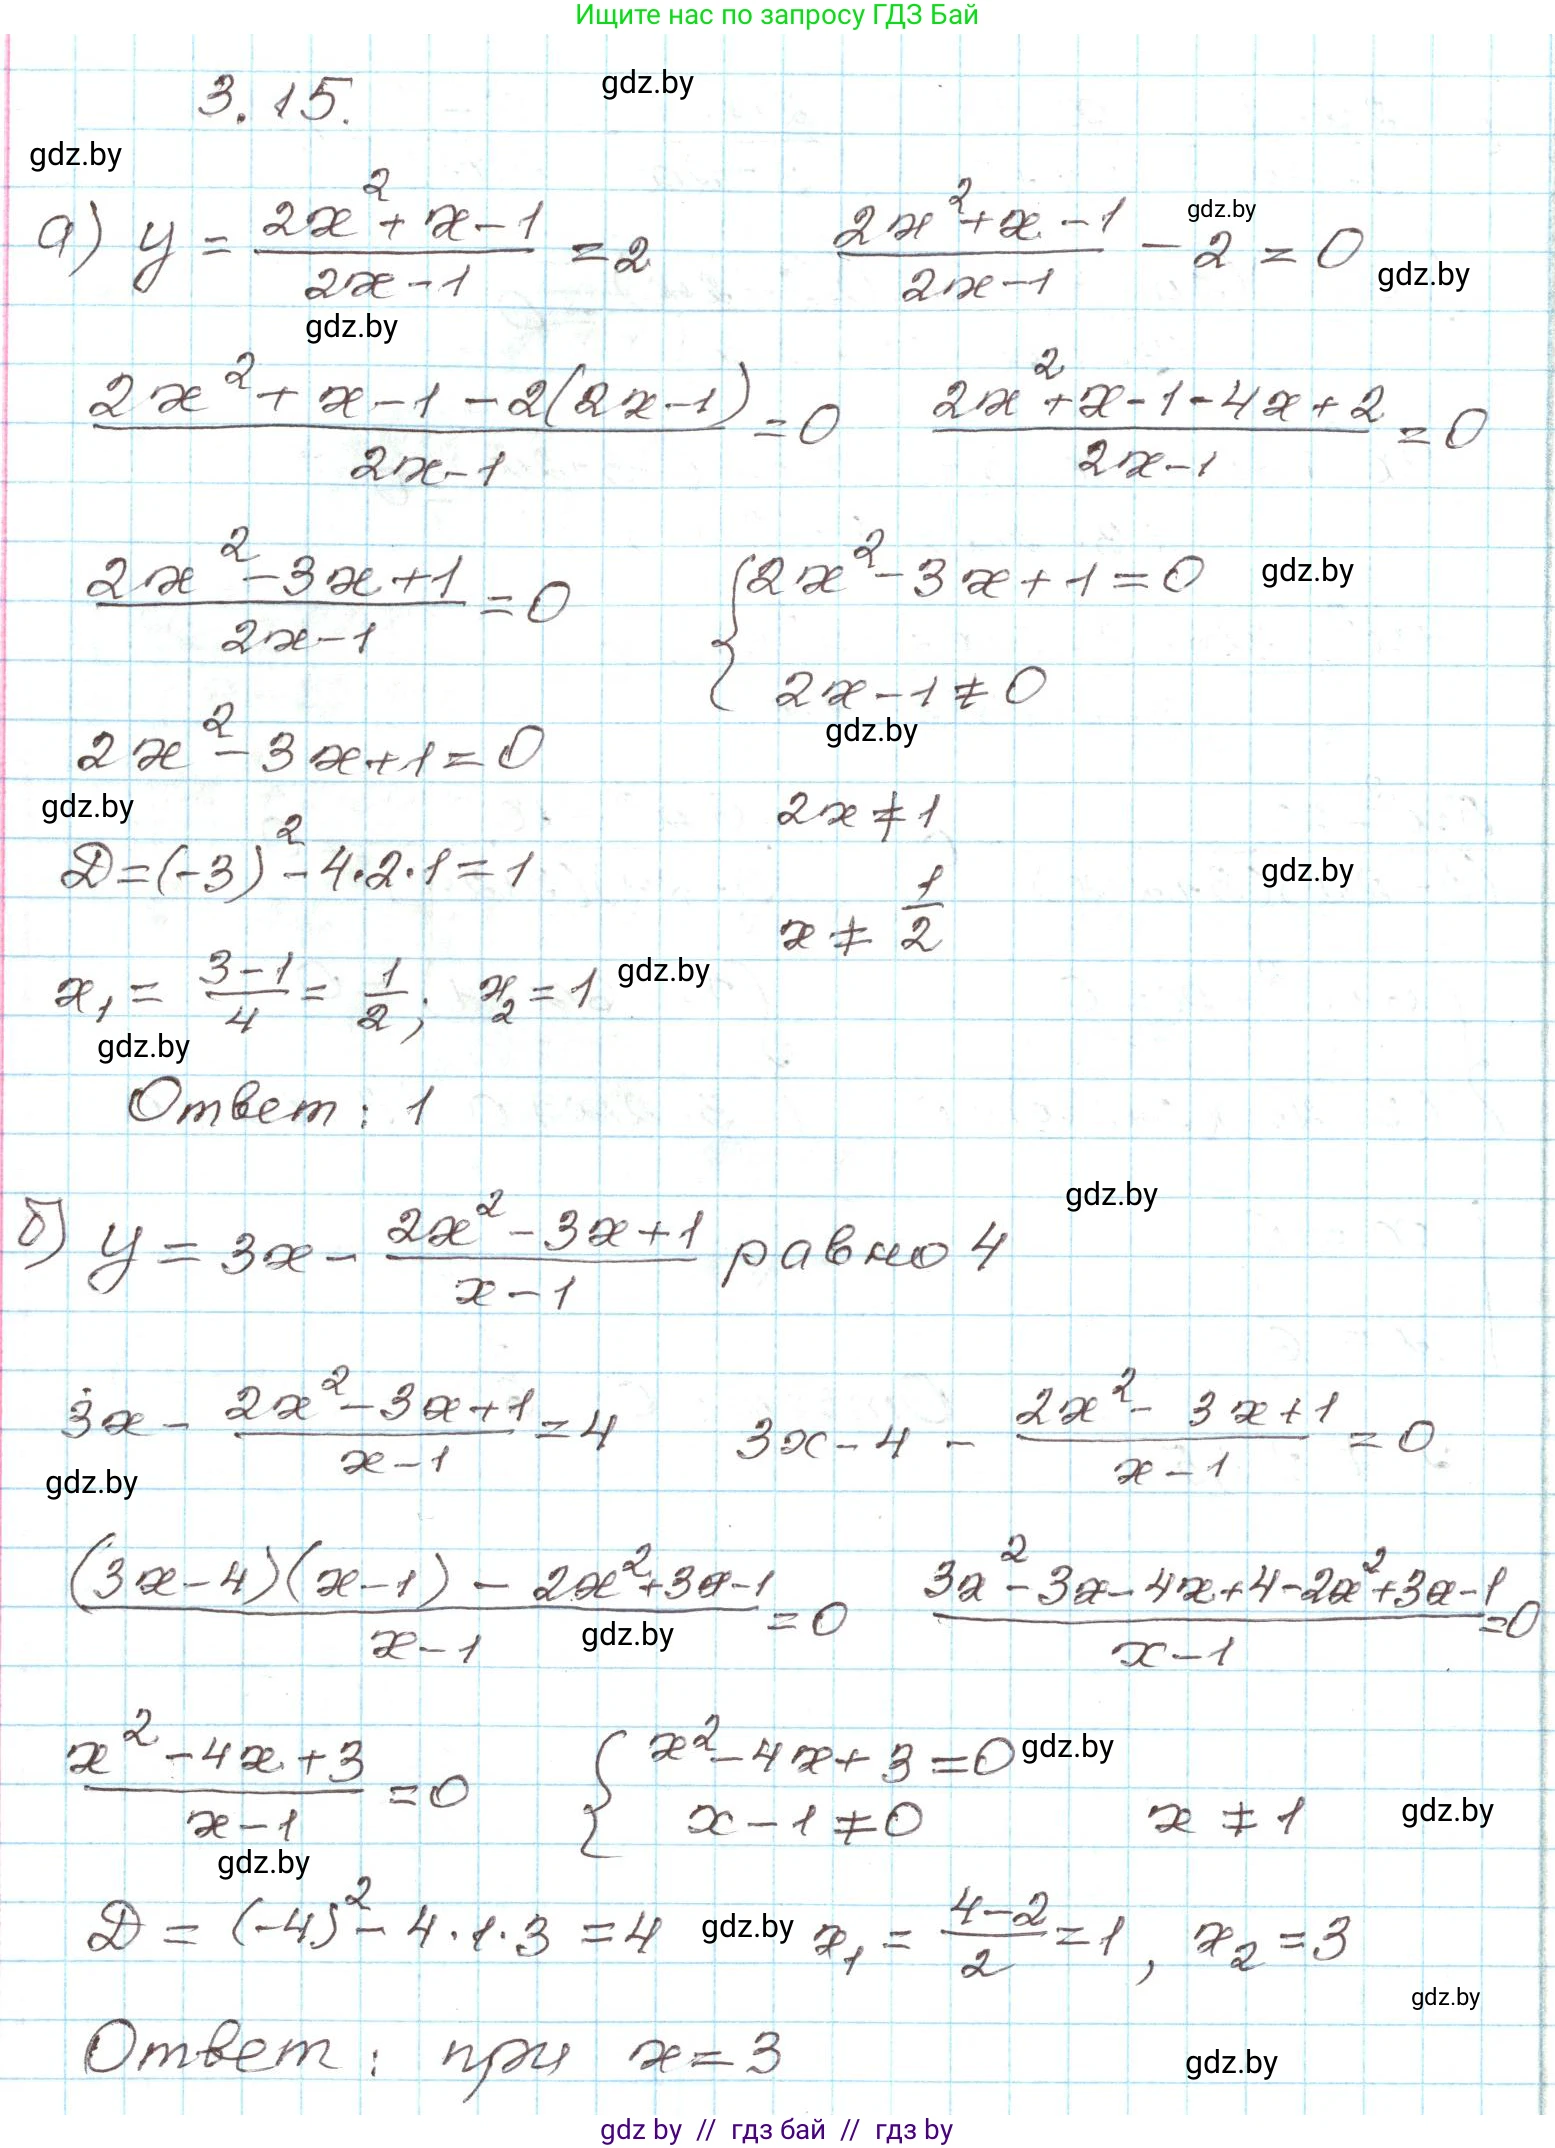 Ищите нас по запросу ГДЗ Бай
3.15.
gdz.by
gdz.by
а) y = (2x² + x - 1)/(2x - 1) = 2    (2x² + x - 1)/(2x - 1) - 2 = 0
gdz.by
gdz.by
gdz.by
(2x² + x - 1 - 2(2x - 1))/(2x - 1) = 0    (2x² + x - 1 - 4x + 2)/(2x - 1) = 0
(2x² - 3x + 1)/(2x - 1) = 0    { 2x² - 3x + 1 = 0
gdz.by
2x - 1 ≠ 0
gdz.by
2x² - 3x + 1 = 0
gdz.by
2x ≠ 1
D = (-3)² - 4·2·1 = 1
gdz.by
x ≠ 1/2
x₁ = (3 - 1)/4 = 1/2; x₂ = 1
gdz.by
gdz.by
Ответ: 1
gdz.by
б) y = 3x - (2x² - 3x + 1)/(x - 1) равно 4
3x - (2x² - 3x + 1)/(x - 1) = 4    3x - 4 - (2x² - 3x + 1)/(x - 1) = 0
gdz.by
((3x - 4)(x - 1) - 2x² + 3x - 1)/(x - 1) = 0    (3x² - 3x - 4x + 4 - 2x² + 3x - 1)/(x - 1) = 0
gdz.by
(x² - 4x + 3)/(x - 1) = 0    { x² - 4x + 3 = 0
gdz.by
x - 1 ≠ 0    x ≠ 1
gdz.by
gdz.by
D = (-4)² - 4·1·3 = 4    x₁ = (4 - 2)/2 = 1, x₂ = 3
gdz.by
gdz.by
Ответ: при x = 3
gdz.by
gdz by // гдз бай // гдз by